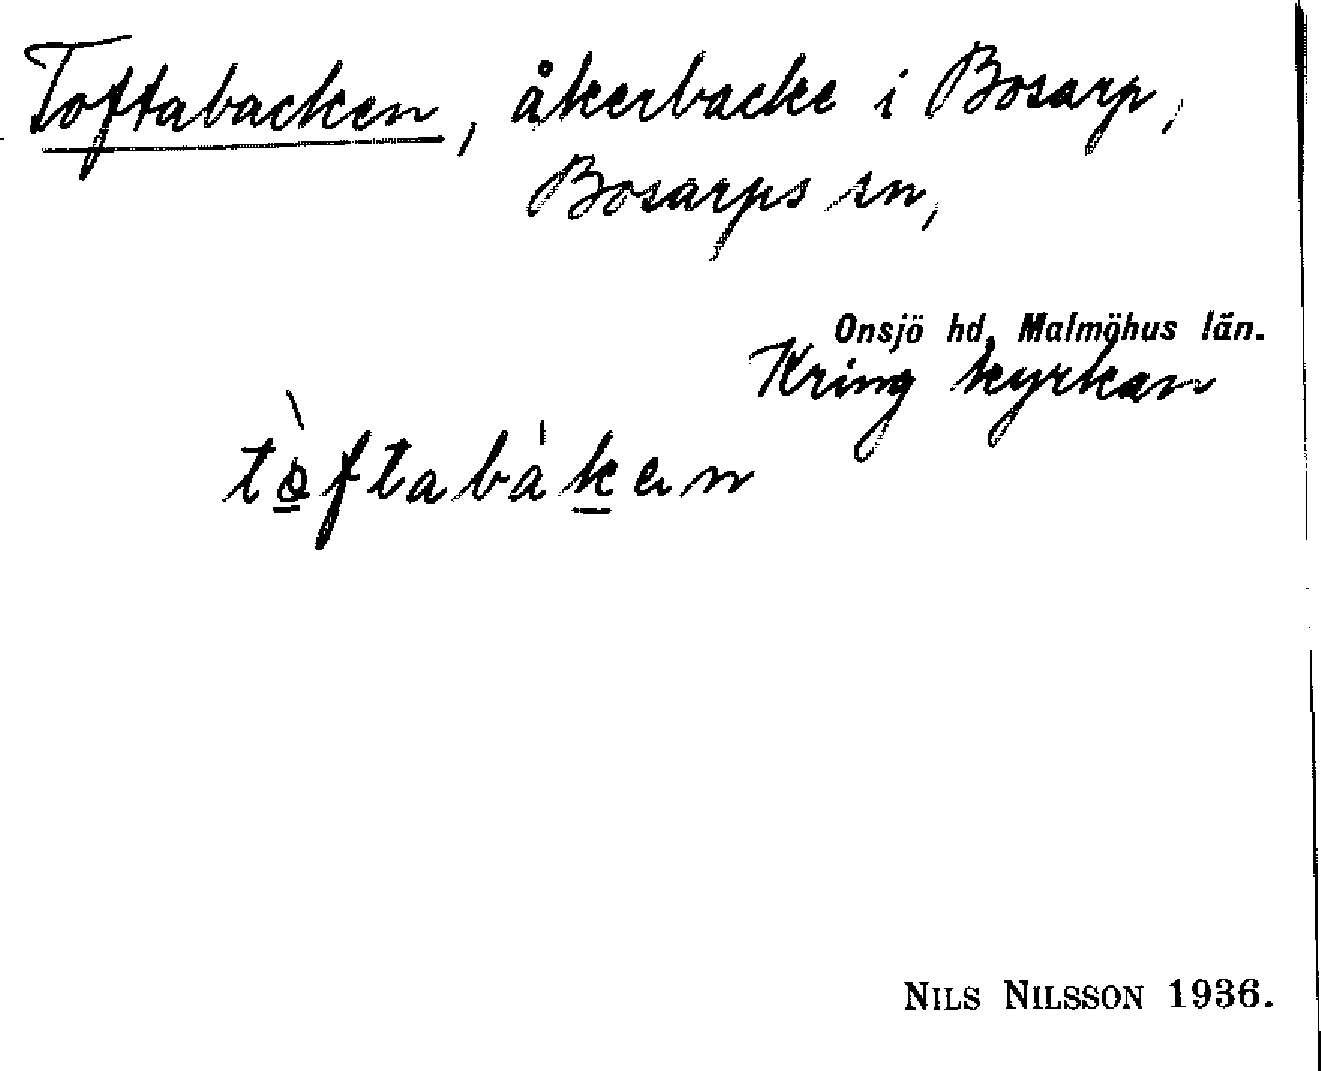 Toftabacken, åkerbacke i Bosarp,
Bosarps sn,
Onsjö hd, Malmöhus län.
Kring kyrkan
tòftabákan
NILS NILSSON 1936.